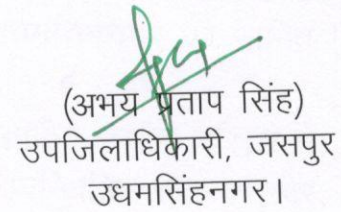 (अभय प्रताप सिंह)
उपजिलाधिकारी, जसपुर
उधमसिंहनगर।